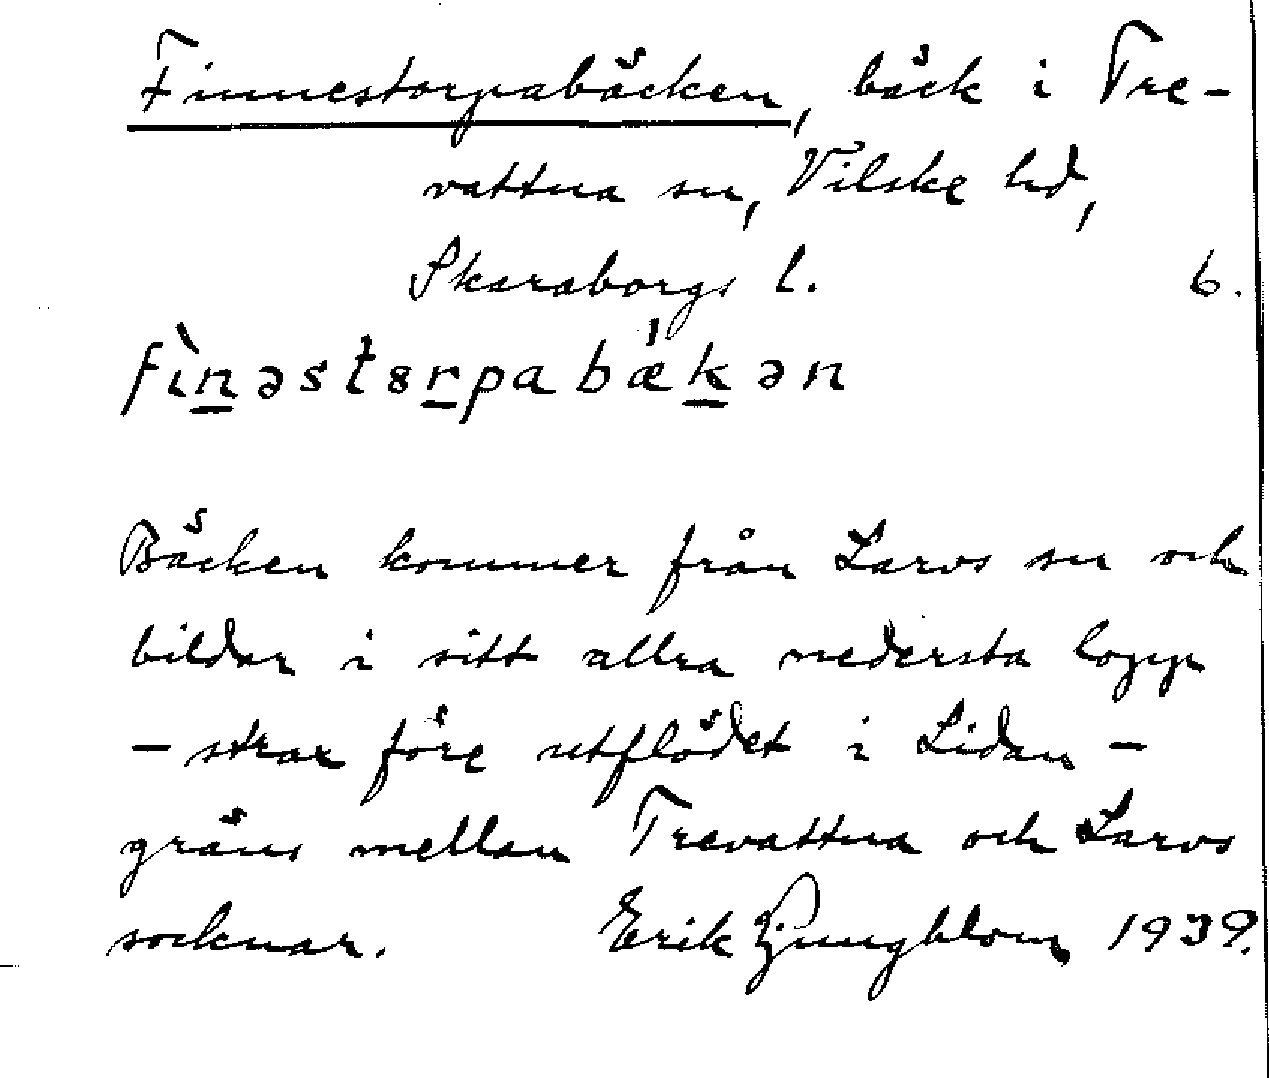 Finnestorpabäcken, bäck i Tre-
vattna sn, Vilske hd,
Skaraborgs l. 6.
fìn̲əstɞr̲pabǽk̲ən
Bäcken kommer från Larvs sn och
bildar i sitt allra nedersta lopp
– strax före utflödet i Lidan –
gräns mellan Trevattna och Larvs
socknar. Erik Ljungblom 1939.